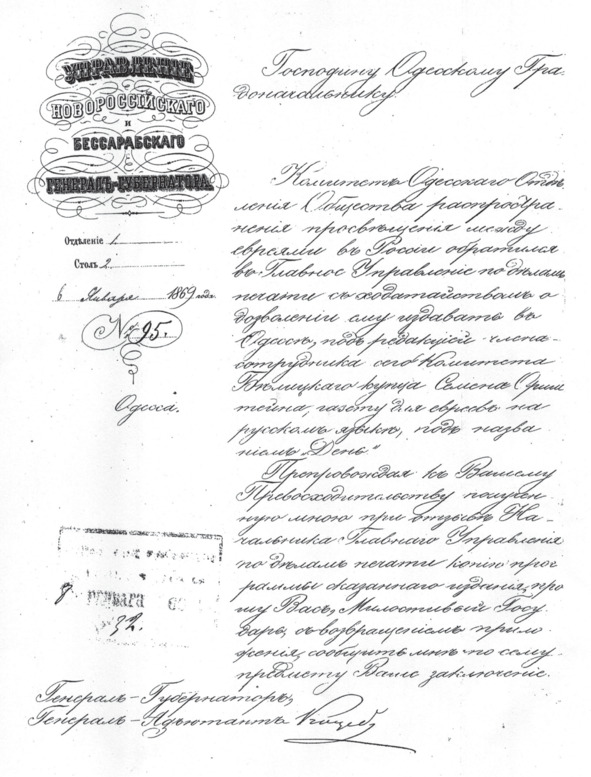 УПРАВЛЕНІЕ
НОВОРОССІЙСКАГО
и
БЕССАРАБСКАГО
ГЕНЕРАЛЪ-ГУБЕРНАТОРА.
Отдѣленіе 1.
Столъ 2.
6 Января 1869 года
№ 95.
Одесса.
Господину Одесскому Гра-
доначальнику.
Комитетъ Одесскаго Отдѣ-
ленія Общества распростра-
ненія просвѣщенія между
евреями въ Россіи обратился
въ Главное Управленіе по дѣламъ
печати съ ходатайствомъ о
дозволеніи ему издавать въ
Одессѣ, подъ редакціей члена-
сотрудника сего Комитета
купца Семена Орнш
тейна, газету для евреевъ на
русскомъ языкѣ, подъ назва
ніемъ „День"
Препровождая къ Вашему
Превосходительству получен-
ную мною при отзывѣ На-
чальника Главнаго Управленія
по дѣламъ печати копію прог
раммы сказаннаго изданія, про
шу Васъ, Милостивый Госу
дарь, съ возвращеніемъ прило-
женія, сообщить мнѣ по сему
предмету Ваше заключеніе.
8
32.
Генералъ-Губернаторъ,
Генералъ-Адъютантъ Коцебу